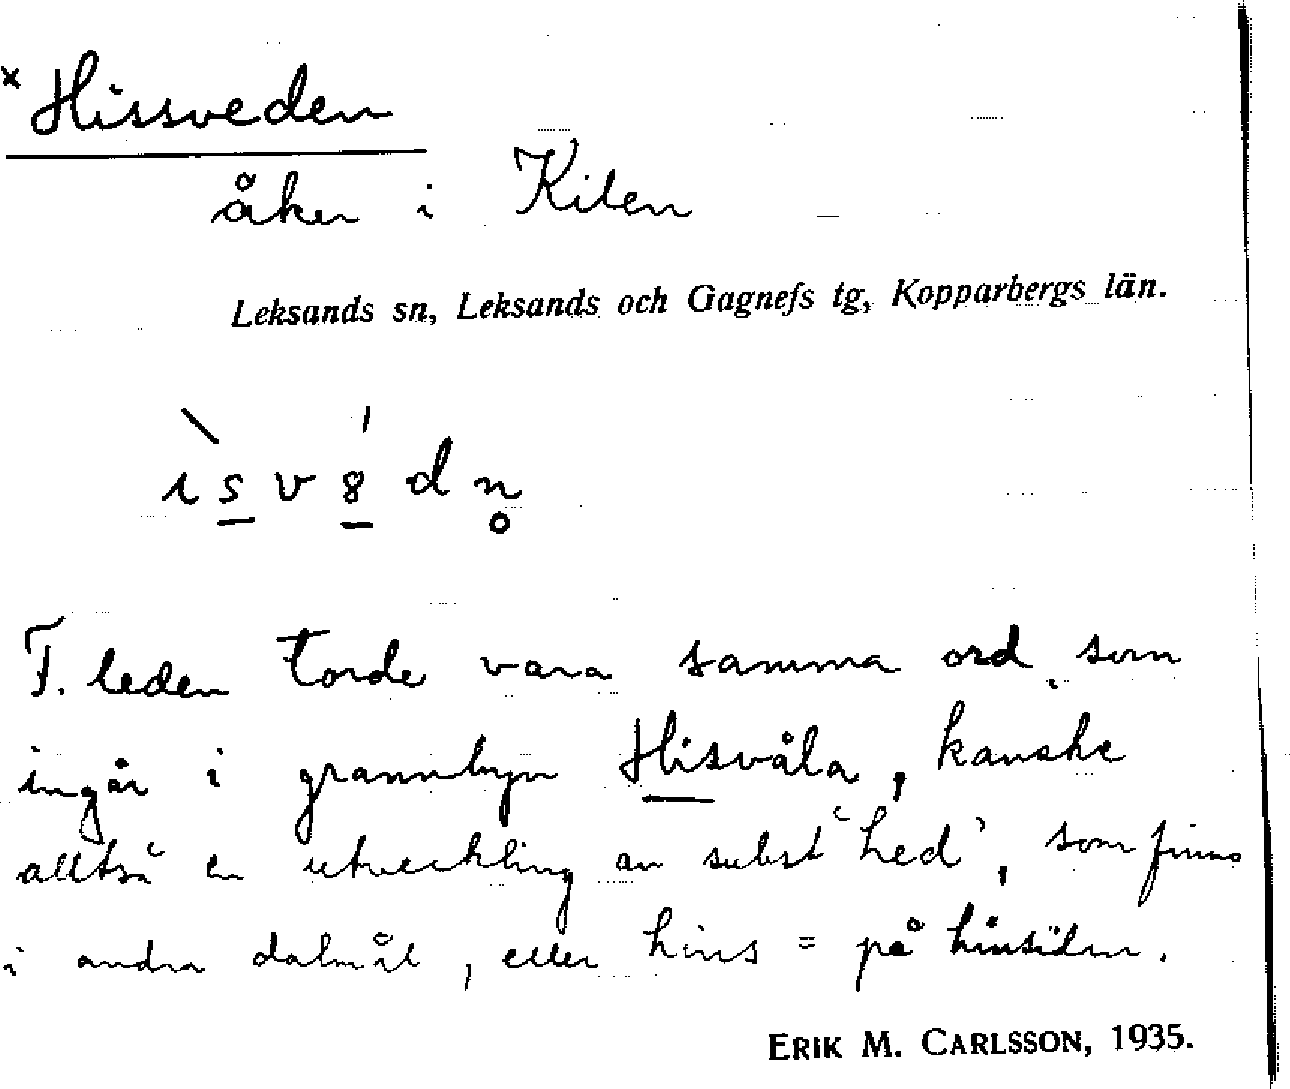 * Hissveden
åker i Kilen
Leksands sn, Leksands och Gagnefs tg, Kopparbergs län.
ı̀s̲v8̲́dn̥
F. leden torde vara samma ord som
ingår i grannbyn Hisvåla, kanske
alltså en utveckling av subst 'hed', som finns
i andra dalmål, eller hins = på hinsidan.
ERIK M. CARLSSON, 1935.